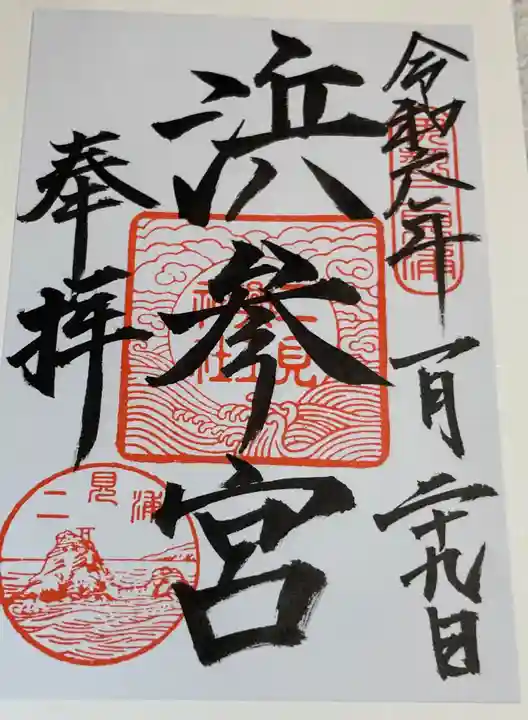 令和六年一月二十九日
浜参宮
奉拝
二見興玉神社
二見浦